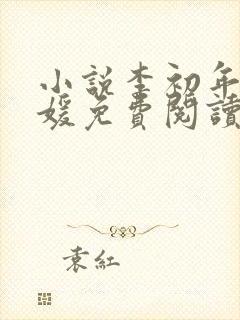 小說李初年
媛免費閱讀
袁紅